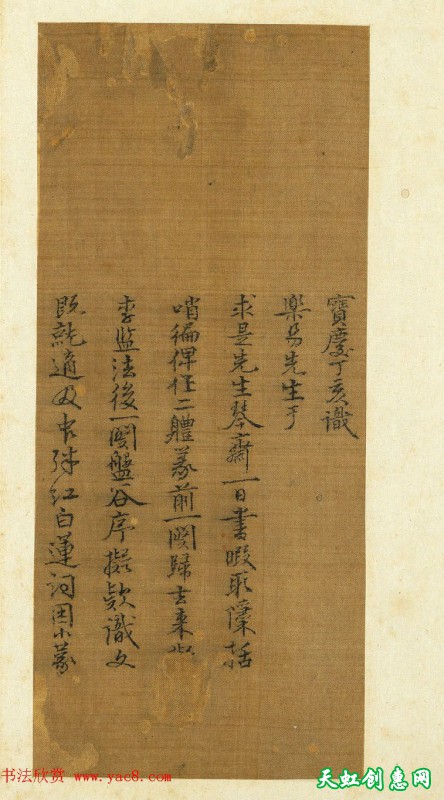 寶慶丁亥識
樂易先生于
求是先生琴齋一日書暇取檃括
哨徧俾作二體篆前一闋歸去來以
李監法後一闋盤谷序擬款識文
既就適及 紅白蓮詞因小篆
书法欣赏 www.yac8.com
天虹创惠网